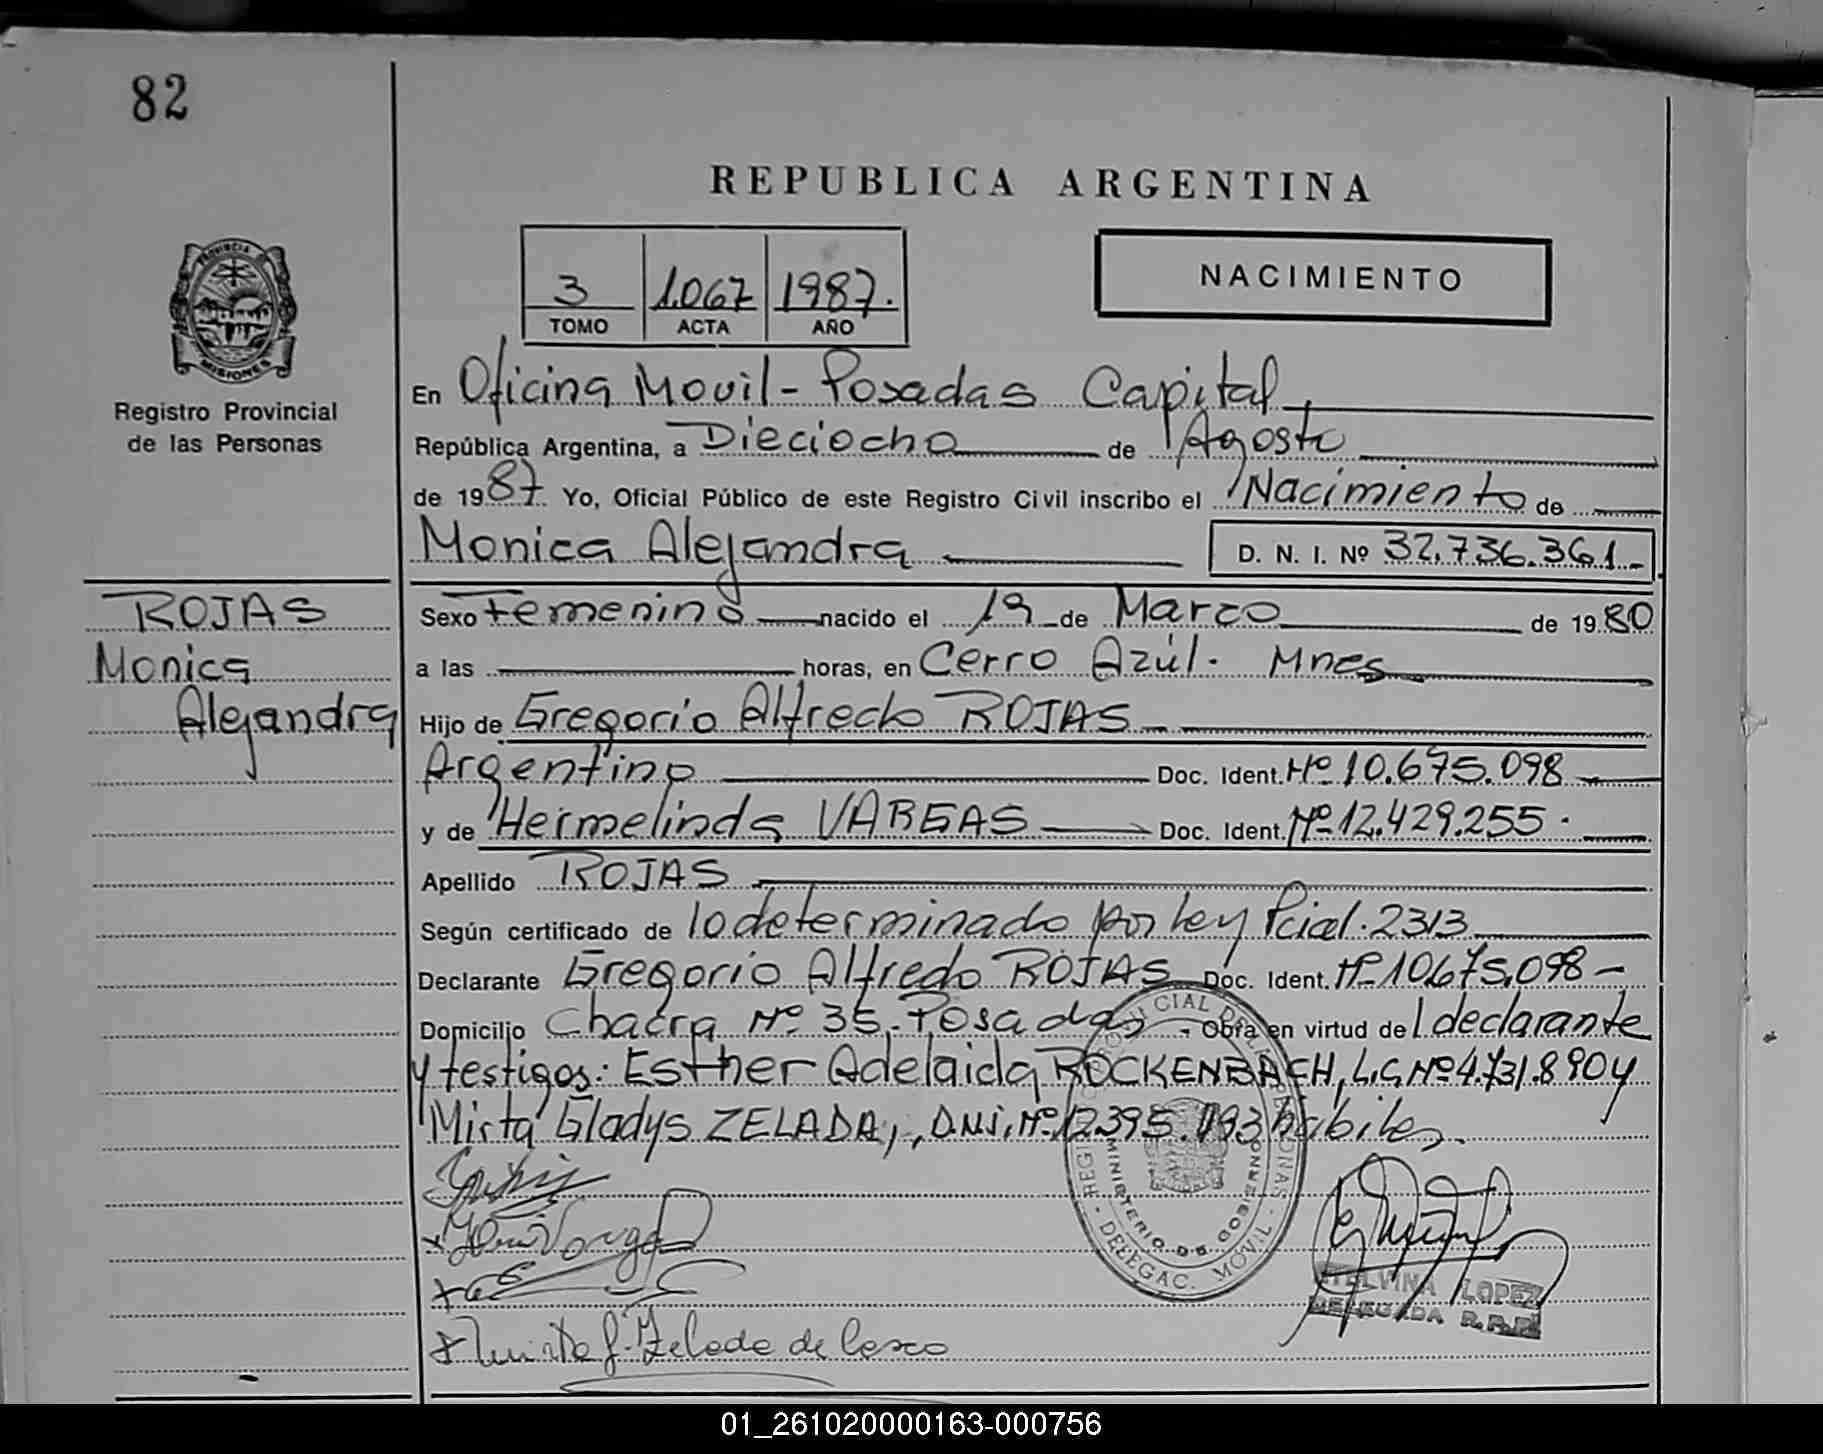 82
REPUBLICA ARGENTINA
PROVINCIA
MISIONES
Registro Provincial
de las Personas
3 1.067 1987.
TOMO ACTA AÑO
NACIMIENTO
En Oficina Movil - Posadas Capital
República Argentina, a Dieciocho de Agosto
de 1987. Yo, Oficial Público de este Registro Civil inscribo el Nacimiento de
Monica Alejandra D. N. I. Nº 32.736.361.-
ROJAS
Monica
Alejandra
Sexo Femenino nacido el 19 de Marzo de 1980
a las horas, en Cerro Azúl. Mnes
Hijo de Gregorio Alfredo ROJAS
Argentino Doc. Ident. Nº 10.675.098
y de Hermelinda VARGAS Doc. Ident. Nº 12.429.255.
Apellido ROJAS
Según certificado de lo determinado por Ley Pcial. 2313
Declarante Gregorio Alfredo ROJAS Doc. Ident. Nº 10.675.098
Domicilio Chacra Nº 35. Posadas - Obra en virtud del declarante
y testigos: Esther Adelaida ROCKENBACH, L.C. Nº 4.731.890 y
Mirta Gladys ZELADA, D.N.I. Nº 12.395.193 hábiles.
MINISTERIO DE GOBIERNO
DELEGAC. MOVIL
Mirta G. Zelada de
ETELVINA LOPEZ
DELEGADA R.P.P.
01_261020000163-000756